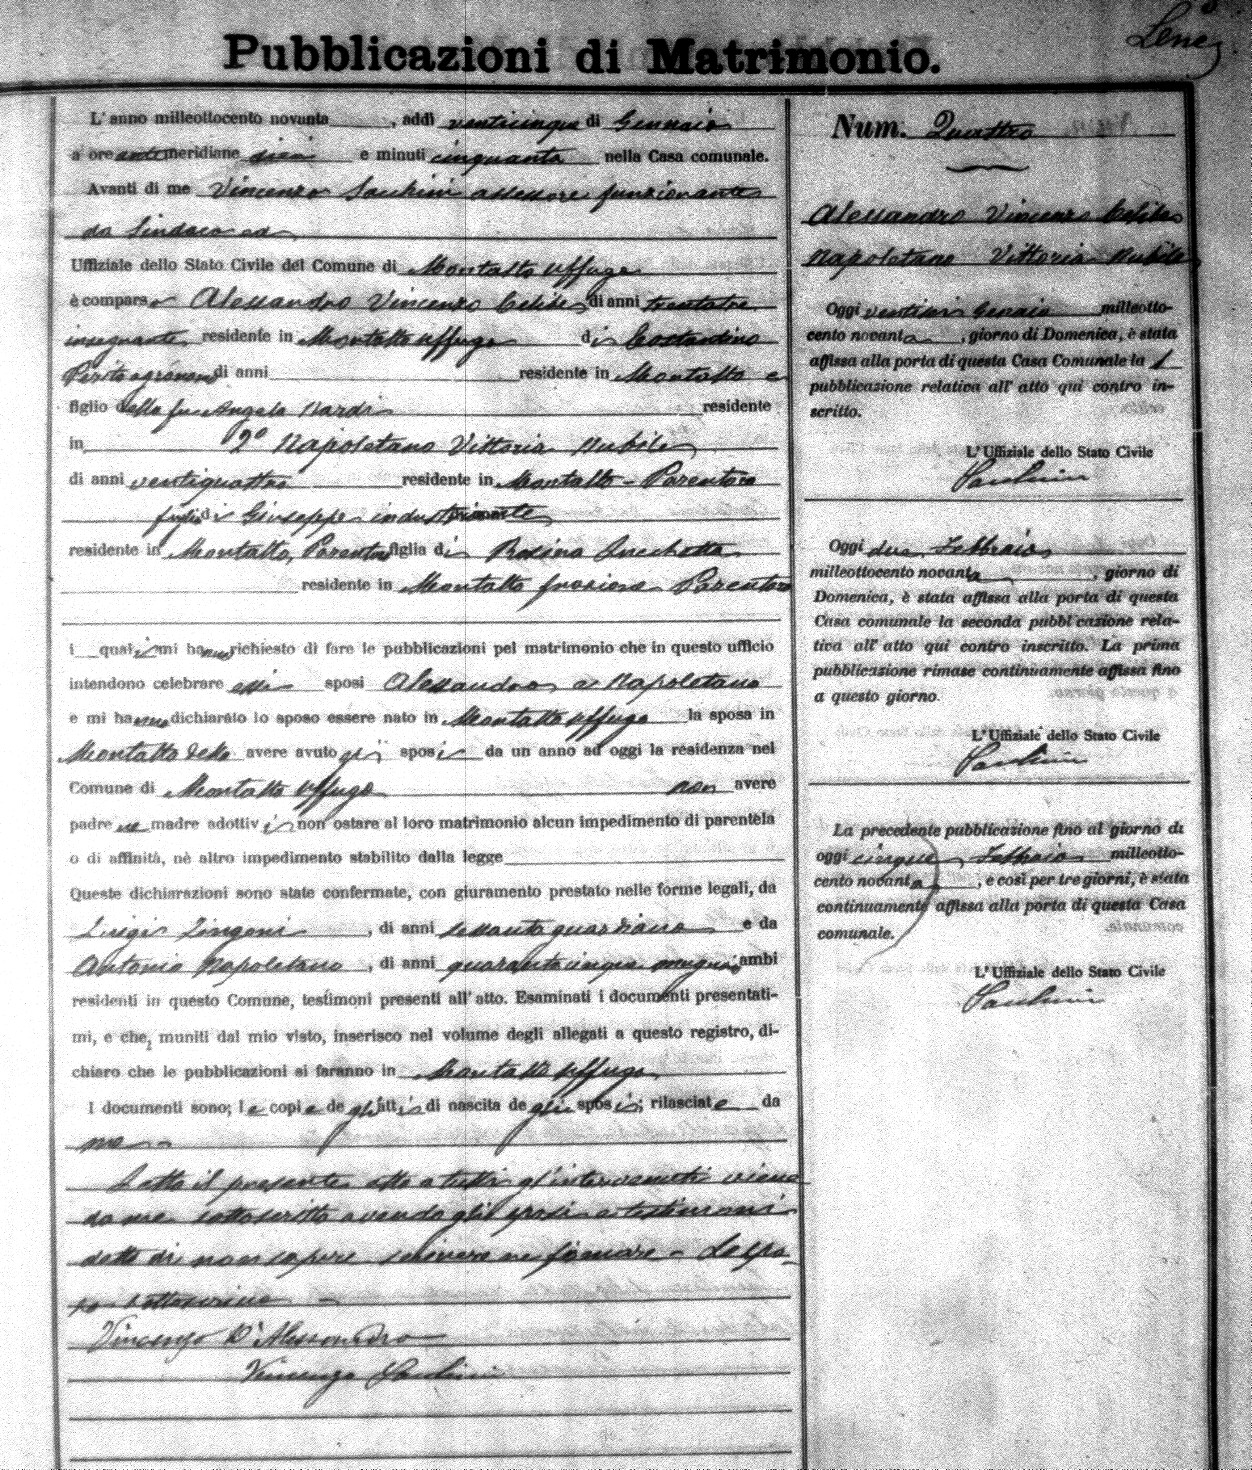 Pubblicazioni di Matrimonio.
L'anno milleottocento novanta, addì venticinque di Gennaio
a ore antimeridiane dieci e minuti cinquanta nella Casa comunale.
Avanti di me Vincenzo Sacchini assessore funzionante
da Sindaco ed
Uffiziale dello Stato Civile del Comune di Montalto Uffugo
è comparso Alessandro Vincenzo Celibe, di anni trentatre
insegnante, residente in Montalto Uffugo di Costantino
Perito agronomo di anni residente in Montalto e
figlio della fu Angela Nardi residente
in 2º Napoletano Vittoria Nubile
di anni ventiquattro residente in Montalto - Parentoro
figlia di Giuseppe industriante
residente in Montalto, Parentoro figlia di Rosina
residente in Montalto frazione Parentoro
i quali mi hanno richiesto di fare le pubblicazioni pel matrimonio che in questo ufficio
intendono celebrare essi sposi Alessandro e Napoletano
e mi hanno dichiarato lo sposo essere nato in Montalto Uffugo la sposa in
Montalto detto avere avuto gli sposi da un anno ad oggi la residenza nel
Comune di Montalto Uffugo non avere
padre ne madre adottivi non ostare al loro matrimonio alcun impedimento di parentela
o di affinità, nè altro impedimento stabilito dalla legge
Queste dichiarazioni sono state confermate, con giuramento prestato nelle forme legali, da
Luigi Zingoni, di anni sessanta guardiano e da
Antonio Napoletano, di anni quarantacinque ambi
residenti in questo Comune, testimoni presenti all'atto. Esaminati i documenti presentati-
mi, e che, muniti dal mio visto, inserisco nel volume degli allegati a questo registro, di-
chiaro che le pubblicazioni si faranno in Montalto Uffugo
I documenti sono; le copie degli atti di nascita degli sposi; rilasciate da
me -
Letto il presente atto a tutti gl'intervenuti viene
da me sottoscritto avendo gli sposi e testimoni
detto di non sapere scrivere ne firmare - Lo spo-
so sottoscrive -
Vincenzo D'Alessandro
Vincenzo Sacchini
Num. Quattro
Alessandro Vincenzo Celibe
Napoletano Vittoria Nubile
Oggi ventisei Gennaio milleotto-
cento novanta, giorno di Domenica, è stata
affissa alla porta di questa Casa Comunale la 1
pubblicazione relativa all'atto qui contro in-
scritto.
L'Uffiziale dello Stato Civile
Sacchini
Oggi due Febbraio
milleottocento novanta, giorno di
Domenica, è stata affissa alla porta di questa
Casa comunale la seconda pubblicazione rela-
tiva all'atto qui contro inscritto. La prima
pubblicazione rimase continuamente affissa fino
a questo giorno.
L'Uffiziale dello Stato Civile
Sacchini
La precedente pubblicazione fino al giorno di
oggi cinque Febbraio milleotto-
cento novanta, e così per tre giorni, è stata
continuamente affissa alla porta di questa Casa
comunale.
L'Uffiziale dello Stato Civile
Sacchini